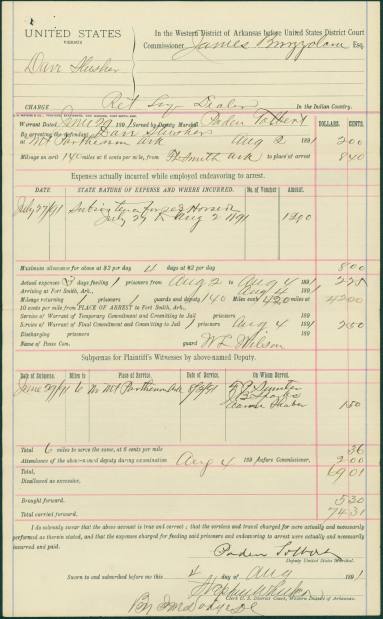 UNITED STATES
VERSUS
In the Western District of Arkansas before United States District Court
Commissioner James Brizzolara Esq.
Dave Slusher
CHARGE Ret Liq Dealer in the Indian Country.
Warrant Dated June 29 1891 Served by Deputy Marshal Paden Tolbert
DOLLARS. CENTS.
By arresting the defendant Dave Slusher
at Mt Parthenon Ark Aug 2 1891 200
Mileage on writ 140 miles at 6 cents per mile, from Ft Smith Ark to place of arrest 840
Expenses actually incurred while employed endeavoring to arrest.
DATE STATE NATURE OF EXPENSE AND WHERE INCURRED. No. of Voucher Amount.
July 27/91 Horse
July 27 to Aug 2 1891 1200
Maximum allowance for above at $2 per day 4 days at $2 per day 800
Actual expenses 3 days feeding 1 prisoners from Aug 2 to Aug 4 1891 225
Arriving at Fort Smith, Ark., Aug 4 1891
Mileage returning 1 prisoners 1 guards and deputy 140 Miles each 420 miles at 4200
10 cents per mile from PLACE OF ARREST to Fort Smith Ark.
Service of Warrant of Temporary Commitment and Committing to Jail prisoners
Service of Warrant of Final Commitment and Committing to Jail 1 prisoners Aug 4 1891 200
Discharging prisoners
Name of Posse Com. guard W L Wilson
Subpœnas for Plaintiff's Witnesses by above-named Deputy.
Date of Subpœna. Miles Place of Service. Date of Service. On Whom Served.
June 29/91 6 Nr Mt Parthenon Ark 8/2/91
150
Total 6 miles to serve the same, at 6 cents per mile 36
Attendance of the above-named deputy during examination Aug 4 1891 before Commissioner. 200
Total, 6901
Disallowed as excessive.
Brought forward. 530
Total carried forward. 7431
I do solemnly swear that the above account is true and correct; that the services and travel charged for were actually and necessarily
performed as therein stated, and that the expenses charged for feeding said prisoners and endeavoring to arrest were actually and necessarily
incurred and paid.
Paden Tolbert
Deputy United States Marshal.
Sworn to and subscribed before me this 4 day of Aug 1891
Stephen Wheeler
Clerk U. S. District Court, Western District of Arkansas.
By J M Dodge DC